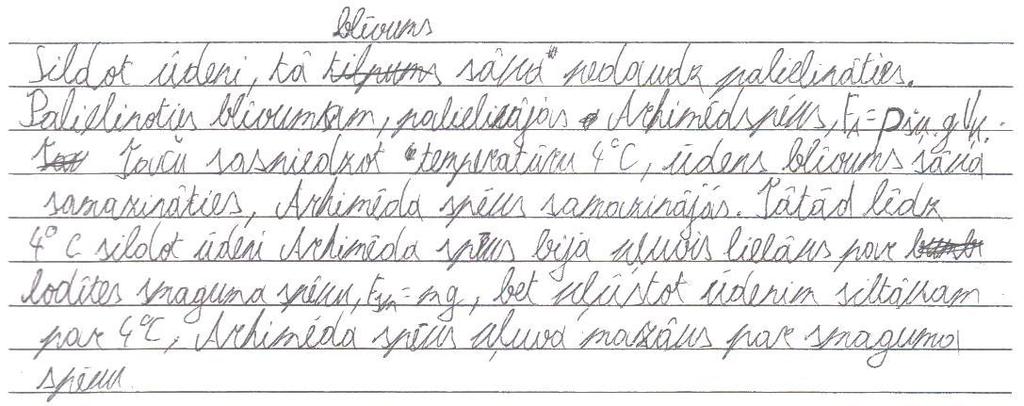 blīvums
Sildot ūdeni, tā tilpums sāka nedaudz palielināties.
Palielinoties blīvumam, palielinājās Arhimēds spēks, FA=ρšķ.gVķ.
Taču sasniedzot temperatūru 4°C, ūdens blīvums sāka
samazināties, Arhimēda spēks samazinājās. Tātad līdz
4°C sildot ūdeni Arhimēda spēks bija kļuvis lielāks par
lodītes smaguma spēku, Fsm=mg, bet kļūstot ūdenim siltākam
par 4°C, Arhimēda spēks kļuva mazāks par smaguma
spēku.